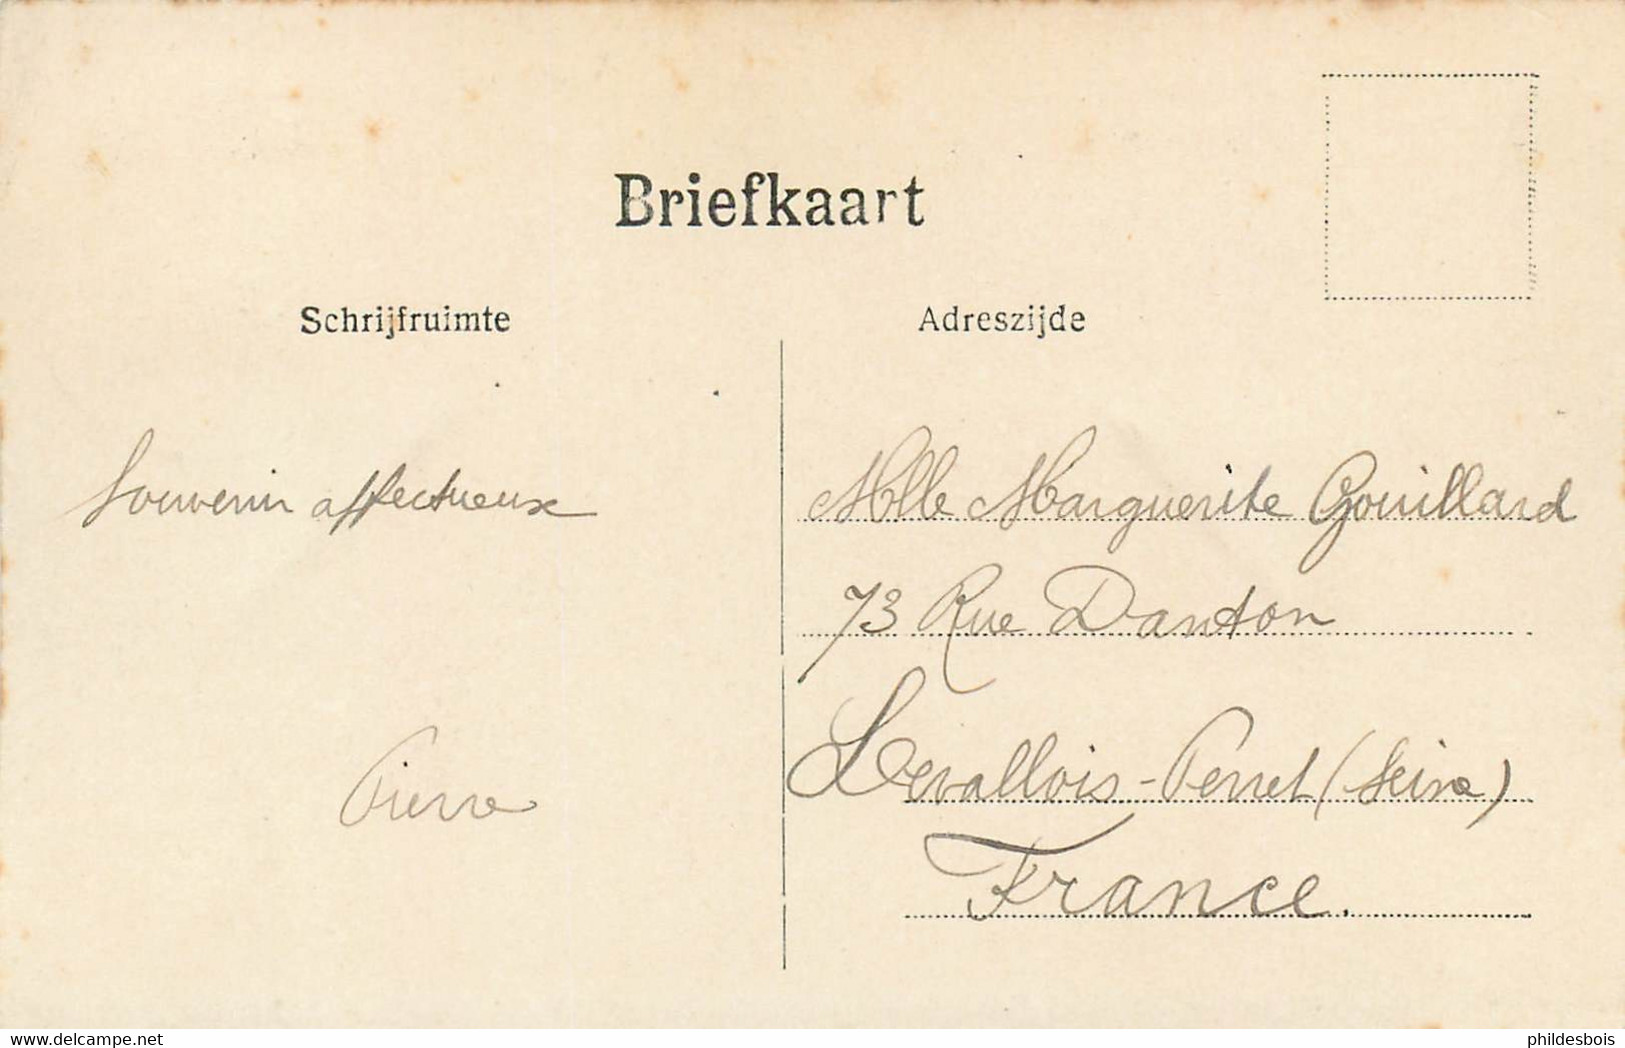 Briefkaart
Schrijfruimte
Adreszijde
Souvenir affectueux
Pierre
Mlle Marguerite Gouillard
73 Rue Danton
Levallois-Perret (Seine)
France.
www.delcampe.net
phildesbois